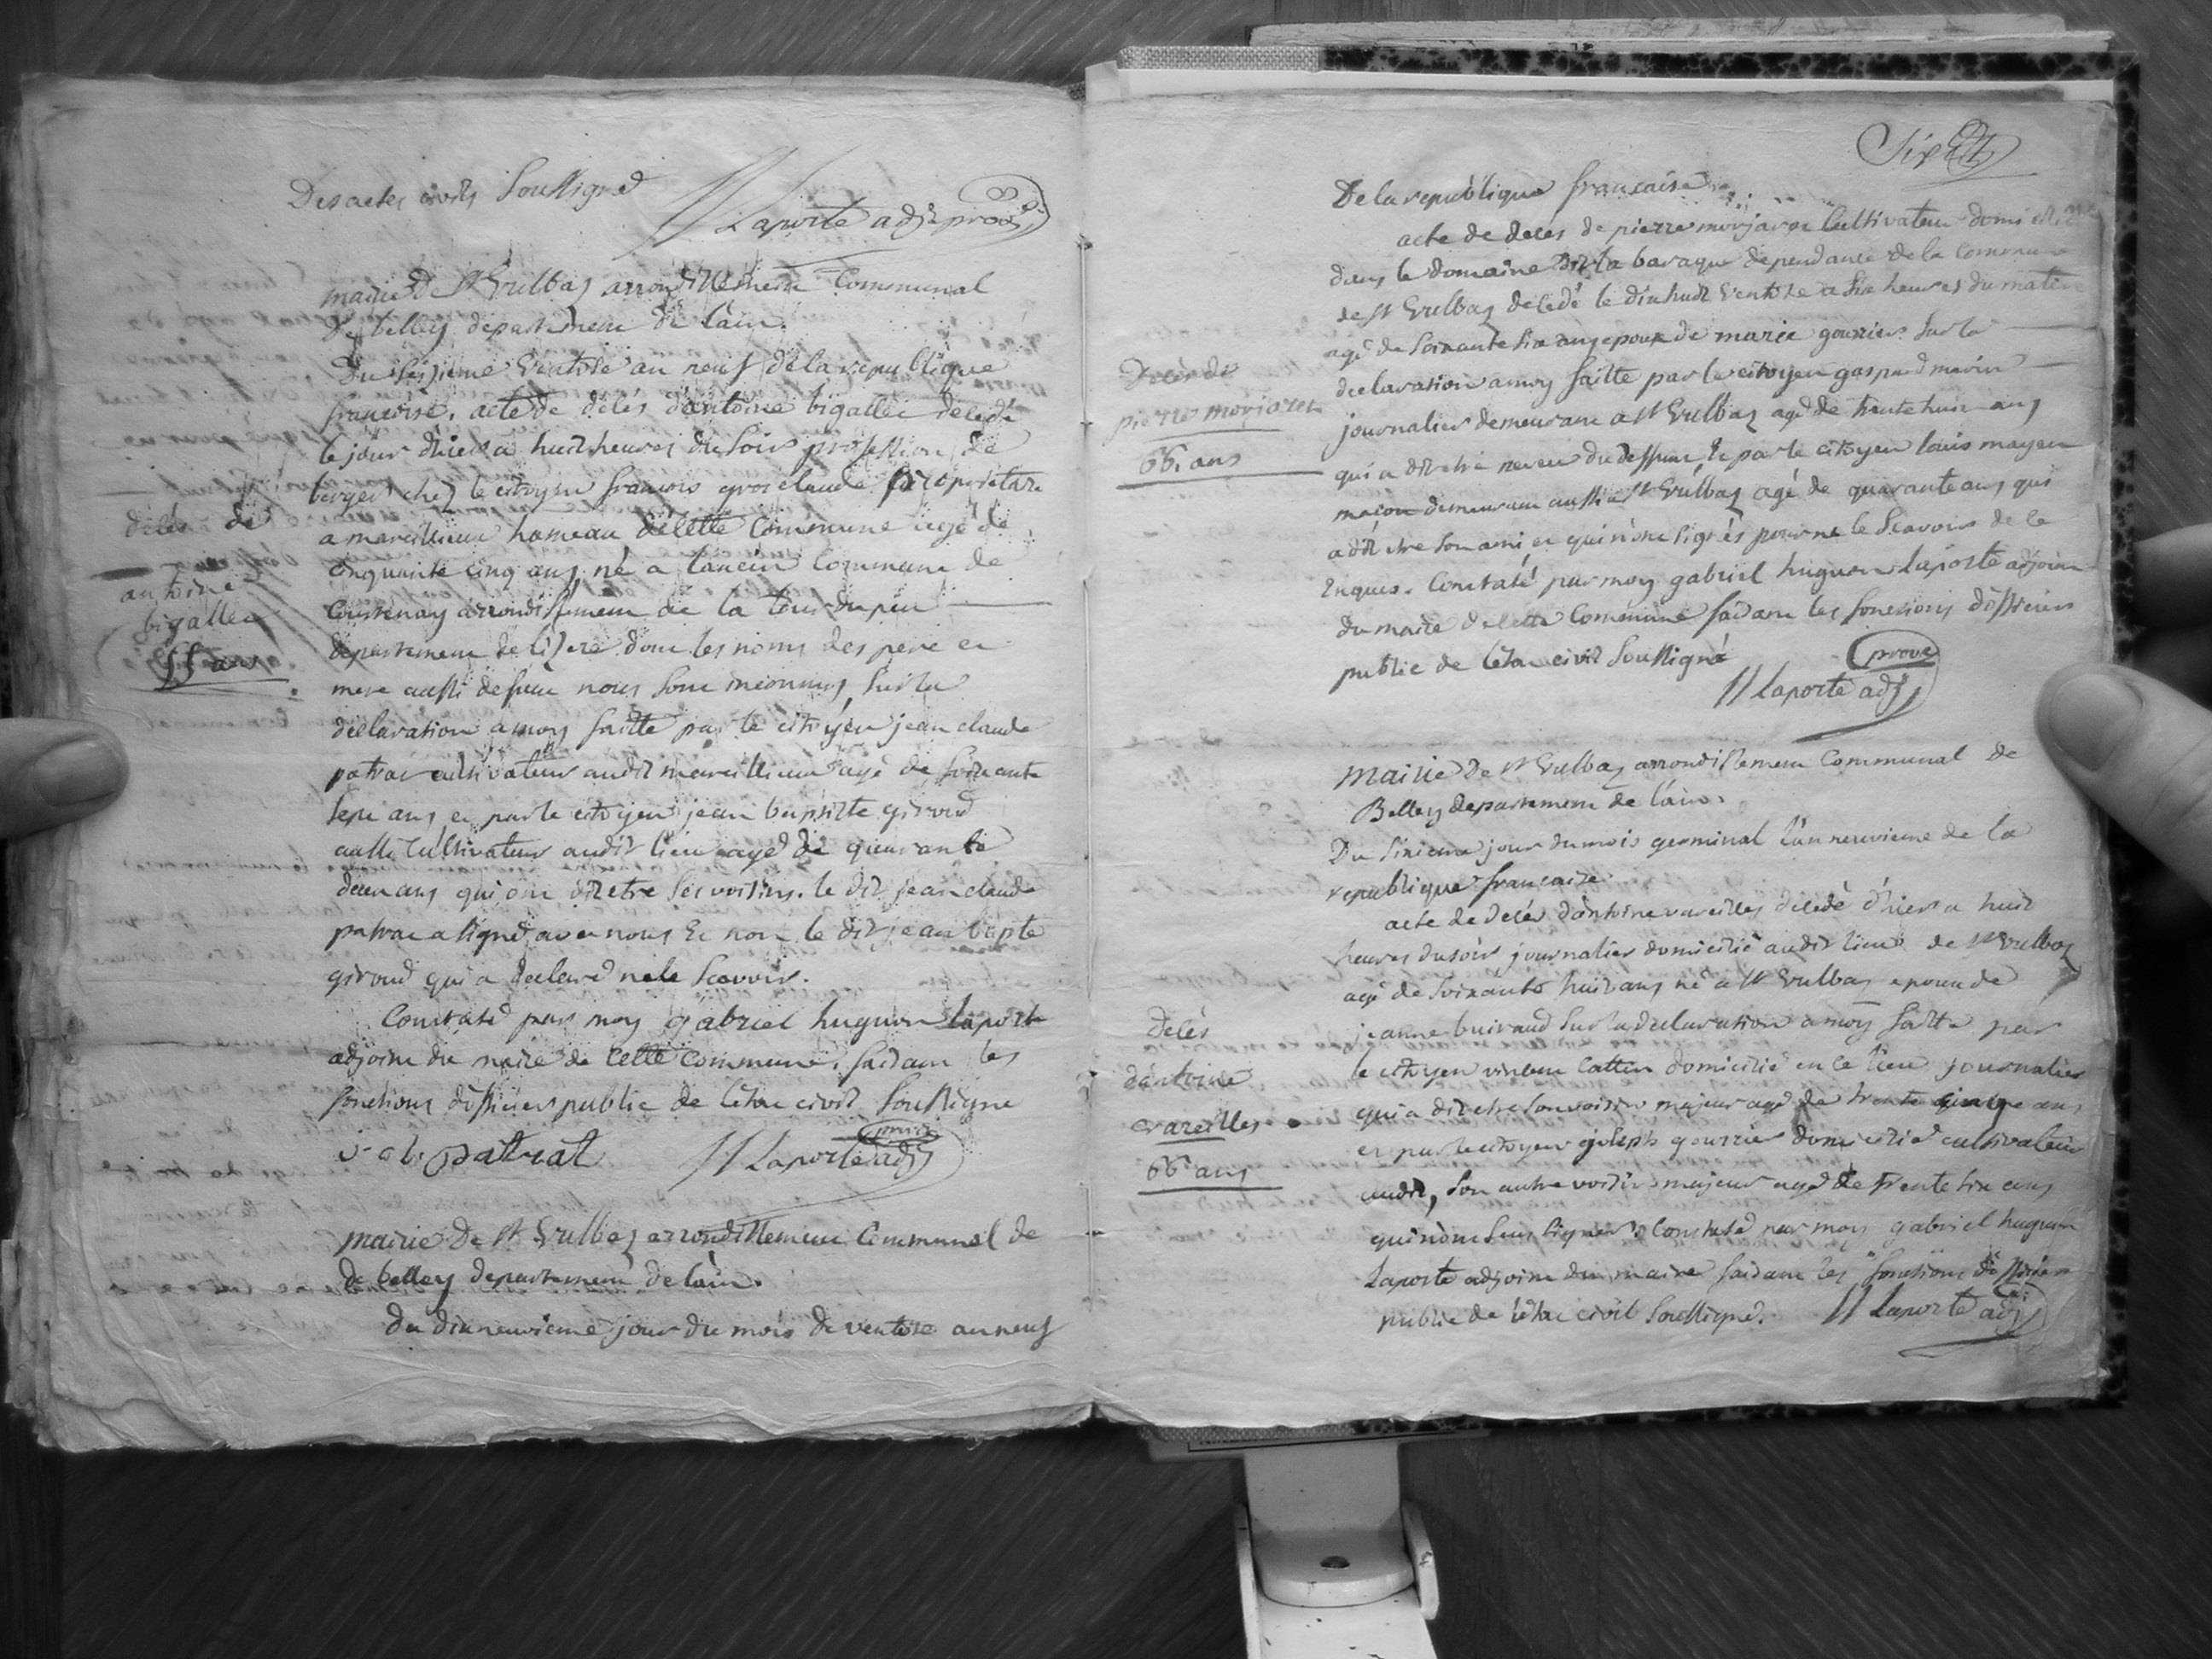 Des actes civils Soussigné
Laporte adjt provre
mairie de St Vulbaz arrondissement Communal
De belley departement de lain.
Du seizieme Ventose an neuf de la republique
francoise. acte de délés dantoine bigallet decedé
le jour dhier a huit heures du soir profession de
berger chez le citoyen francois gros claude propriétaire
a marcillieux hameau de cette Commune agé de
cinquante cinq ans, né a lancin Commune de
Courtenay arrondissement de la tour du pin
departement de lizere dont les noms des pere et
mere aussi defunt nous sont inconnus, sur la
declaration a moy faitte par le citoyen jean claude
patrat cultivateur audit marcillieux agé de soixante
sept ans et par le citoyen jean baptiste giroud
aussi Cultivateur audit lieu agé de quarante
deux ans qui ont dit etre ses voisins. le dit jean claude
patrat a signé avec nous Et non le dit jean bapte
giroud qui a declaré ne le Scavoir.
Constaté par moy gabriel hugnon laporte
adjoint du maire de cette commune. faisant les
fonctions dofficier public de létat civil Soussigné
j c l patrat Laporte adjt provre
mairie De St Vulbaz arrondissement Communal de
de belley departement de lain.
du dixneuvieme jour du mois de ventose an neuf
délés de
antoine
bigallet
55 ans
Six
De la republique francaise
acte de decés de pierre morjaret Cultivateur domicilié
dans le domaine dit la baraque dependance de la Commune
de St Vulbaz decedé le dix huit Ventose a Six heures du matin
agé de Soixante Six ans epoux de marie gourrier Sur la
declaration a moy faitte par le citoyen gaspard morin
journalier demeurant a St Vulbaz agé de trente huit ans
qui a dit etre neveu du deffunt Et par le citoyen louis mayen
macon demeurant aussi a St Vulbaz agé de quarante ans qui
a dit etre Son ami et qui n'ont Signés pour ne le Scavoir de ce
Enquis. Constaté par moy gabriel hugnon Laporte adjoint
du maire de cette Commune faisant les fonctions dofficier
public de létat civil Soussigné
Laporte adjt provre
Decés de
pierre morjaret
66. ans
Mairie de St Vulbaz arrondissement Communal de
Belley departement de l'ain.
Du Sixieme jour du mois germinal l'an neuvieme de la
republique francaise
acte de Decés d'antoine vareilles décedé d'hier a huit
heures du soir journalier domicilié audit lieu de St Vulbaz
agé de Soixante huit ans né a St Vulbas epoux de
jeanne buivaud Sur la declaration a moy faitte par
le citoyen vincent Cattin domicilié en ce lieu journalier
qui a dit etre son voisin majeur agé de trente quinze ans
et par le citoyen joseph gourrier domicilié cultivateur
audit, Son autre voisin majeur agé de Trente six ans
qui n'ont Sceu Signer. Constaté par moy gabriel hugnon
Laporte adjoint du maire faisant les fonctions dofficier
public de létat civil Soussigné. Laporte adjt
Delés
dantoine
vareilles
66 ans